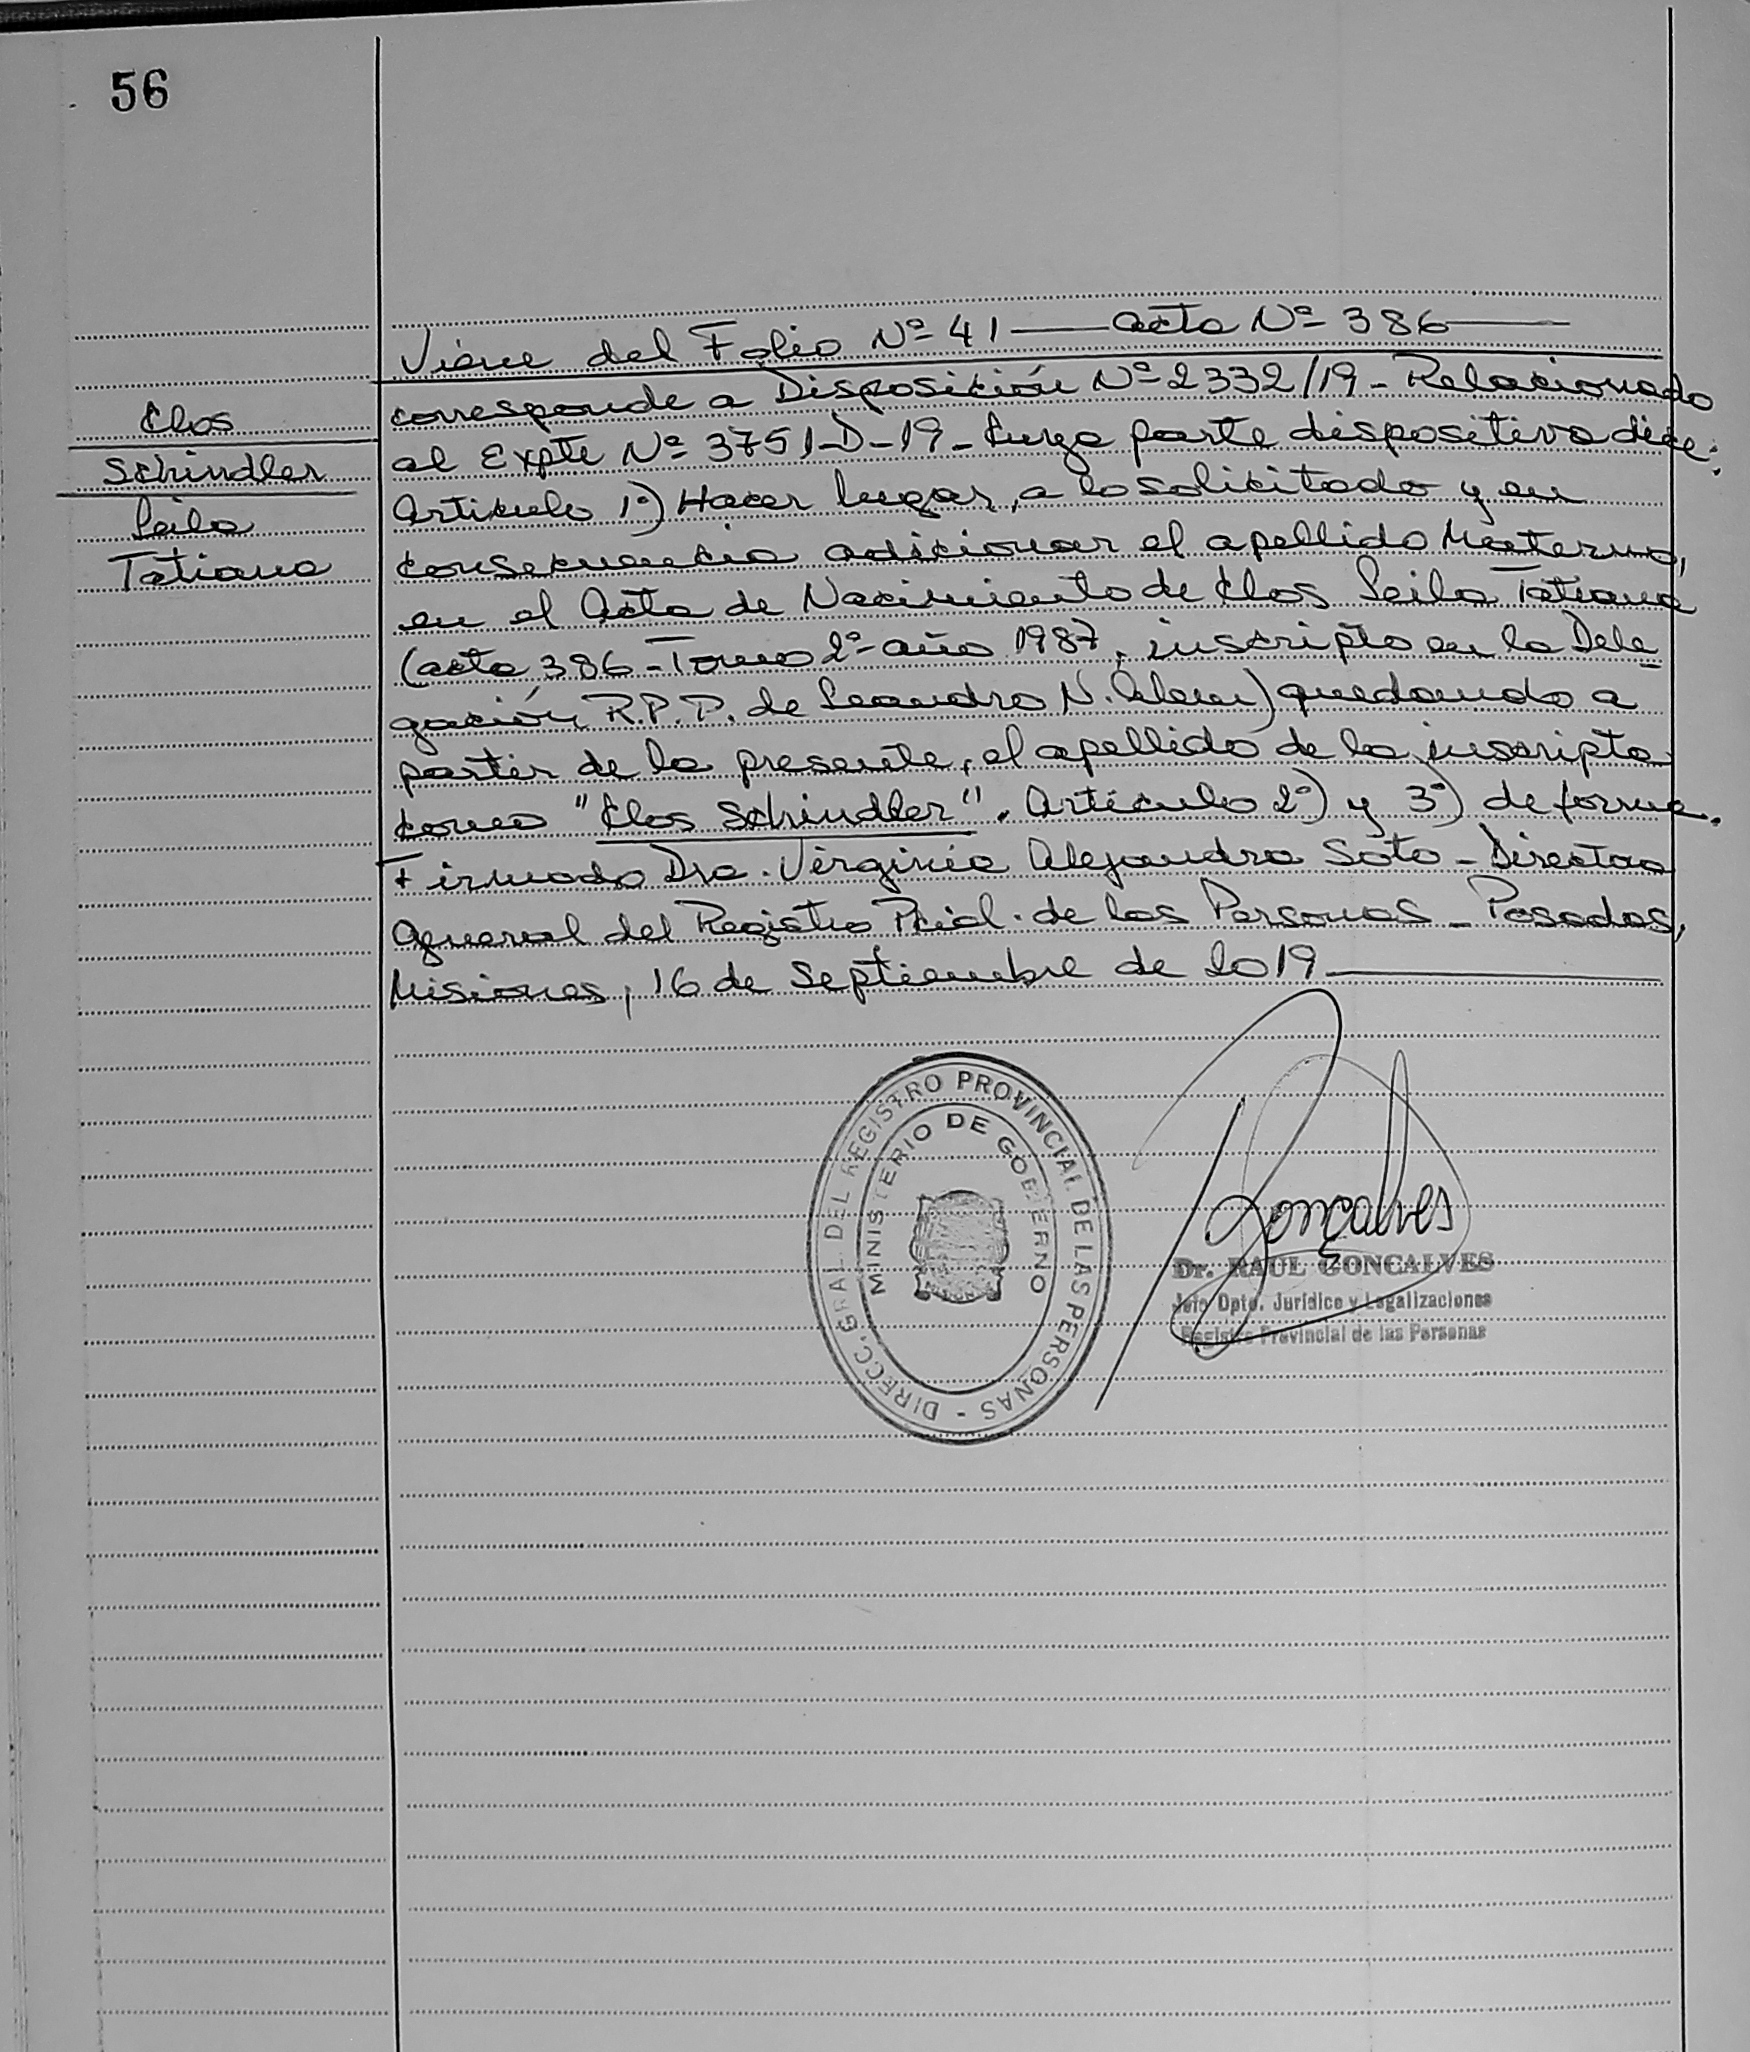 56
Clos
Schindler
Leila
Tatiana
Viene del Folio Nº 41 — Acta Nº 386 —
corresponde a Disposición Nº 2332/19 - Relacionado
al Expte Nº 3751-D-19 - Cuya parte dispositiva dice:
Artículo 1º) Hacer lugar, a lo solicitado y en
consecuencia adicionar el apellido Materno,
en el Acta de Nacimiento de Clos Leila Tatiana
(acta 386 - Tomo 2º - año 1987, inscripta en la Dele-
gación R.P.P. de Leandro N. Alem) quedando a
partir de la presente, el apellido de la inscripta
como "Clos Schindler". Artículo 2º) y 3º) de forma.
Firmado Dra. Virginia Alejandra Soto - Directora
General del Registro Pcial. de las Personas - Posadas,
Misiones, 16 de Septiembre de 2019
DIRECC. GRAL. DEL REGISTRO PROVINCIAL DE LAS PERSONAS -
MINISTERIO DE GOBIERNO
Gonçalves
Dr. RAUL GONCALVES
Jefe Dpto. Jurídico y Legalizaciones
Registro Provincial de las Personas